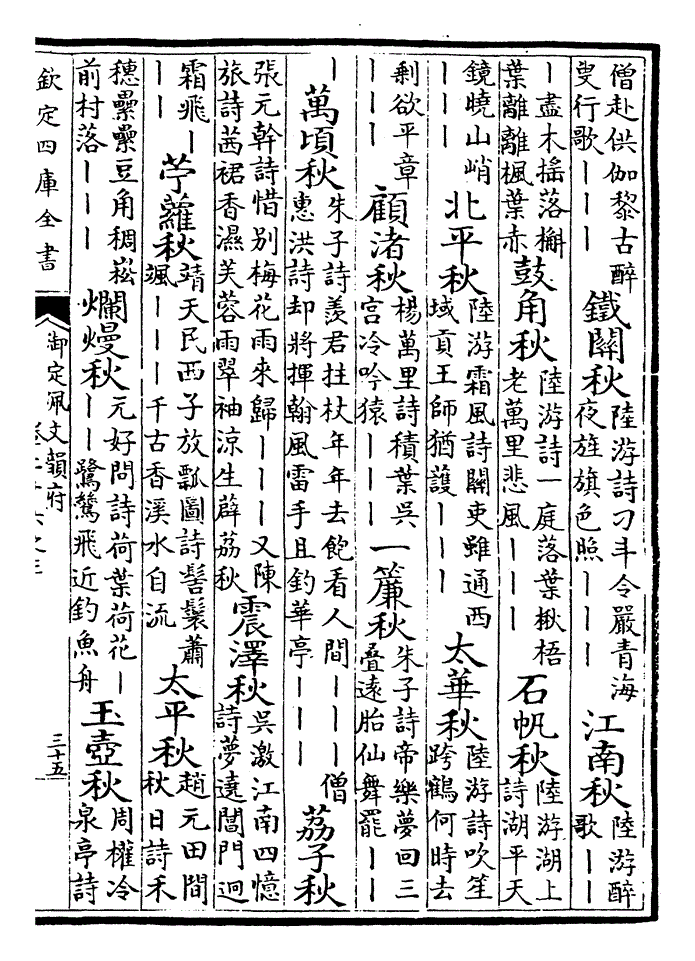 僧赴供伽黎古醉
叟行歌｜｜｜
鐵關秋
陸游詩刁斗令嚴青海
夜旌旗色照｜｜｜
江南秋
陸游醉
歌｜｜
｜盡木搖落槲
葉離離楓葉赤
鼓角秋
陸游詩一庭落葉楸梧
老萬里悲風｜｜｜
石帆秋
陸游湖上
詩湖平天
鏡曉山峭
｜｜｜
北平秋
陸游霜風詩關吏雖通西
域貢王師猶護｜｜｜
太華秋
陸游詩吹笙
跨鶴何時去
剩欲平章
｜｜｜
顧渚秋
楊萬里詩積葉吳
宮冷吟猿｜｜｜
一簾秋
朱子詩帝樂夢回三
疊遠胎仙舞罷｜｜
｜
萬頃秋
朱子詩羨君拄杖年年去飽看人間｜｜｜僧
惠洪詩却將揮翰風雷手且釣華亭｜｜｜
荔子秋
張元幹詩惜别梅花雨來歸｜｜｜又陳
旅詩茜裙香濕芙蓉雨翠袖涼生薜荔秋
震澤秋
吳激江南四憶
詩夢遶閶門迥
霜飛｜
｜｜
苧蘿秋
靖天民西子放瓢圖詩髻鬟蕭
颯｜｜｜千古香溪水自流
太平秋
趙元田間
秋日詩禾
穗纍纍豆角稠崧
前村落｜｜｜
爛熳秋
元好問詩荷葉荷花｜
｜｜鷺鷥飛近釣魚舟
玉壺秋
周權冷
泉亭詩
欽定四庫全書
御定佩文韻府
三十五